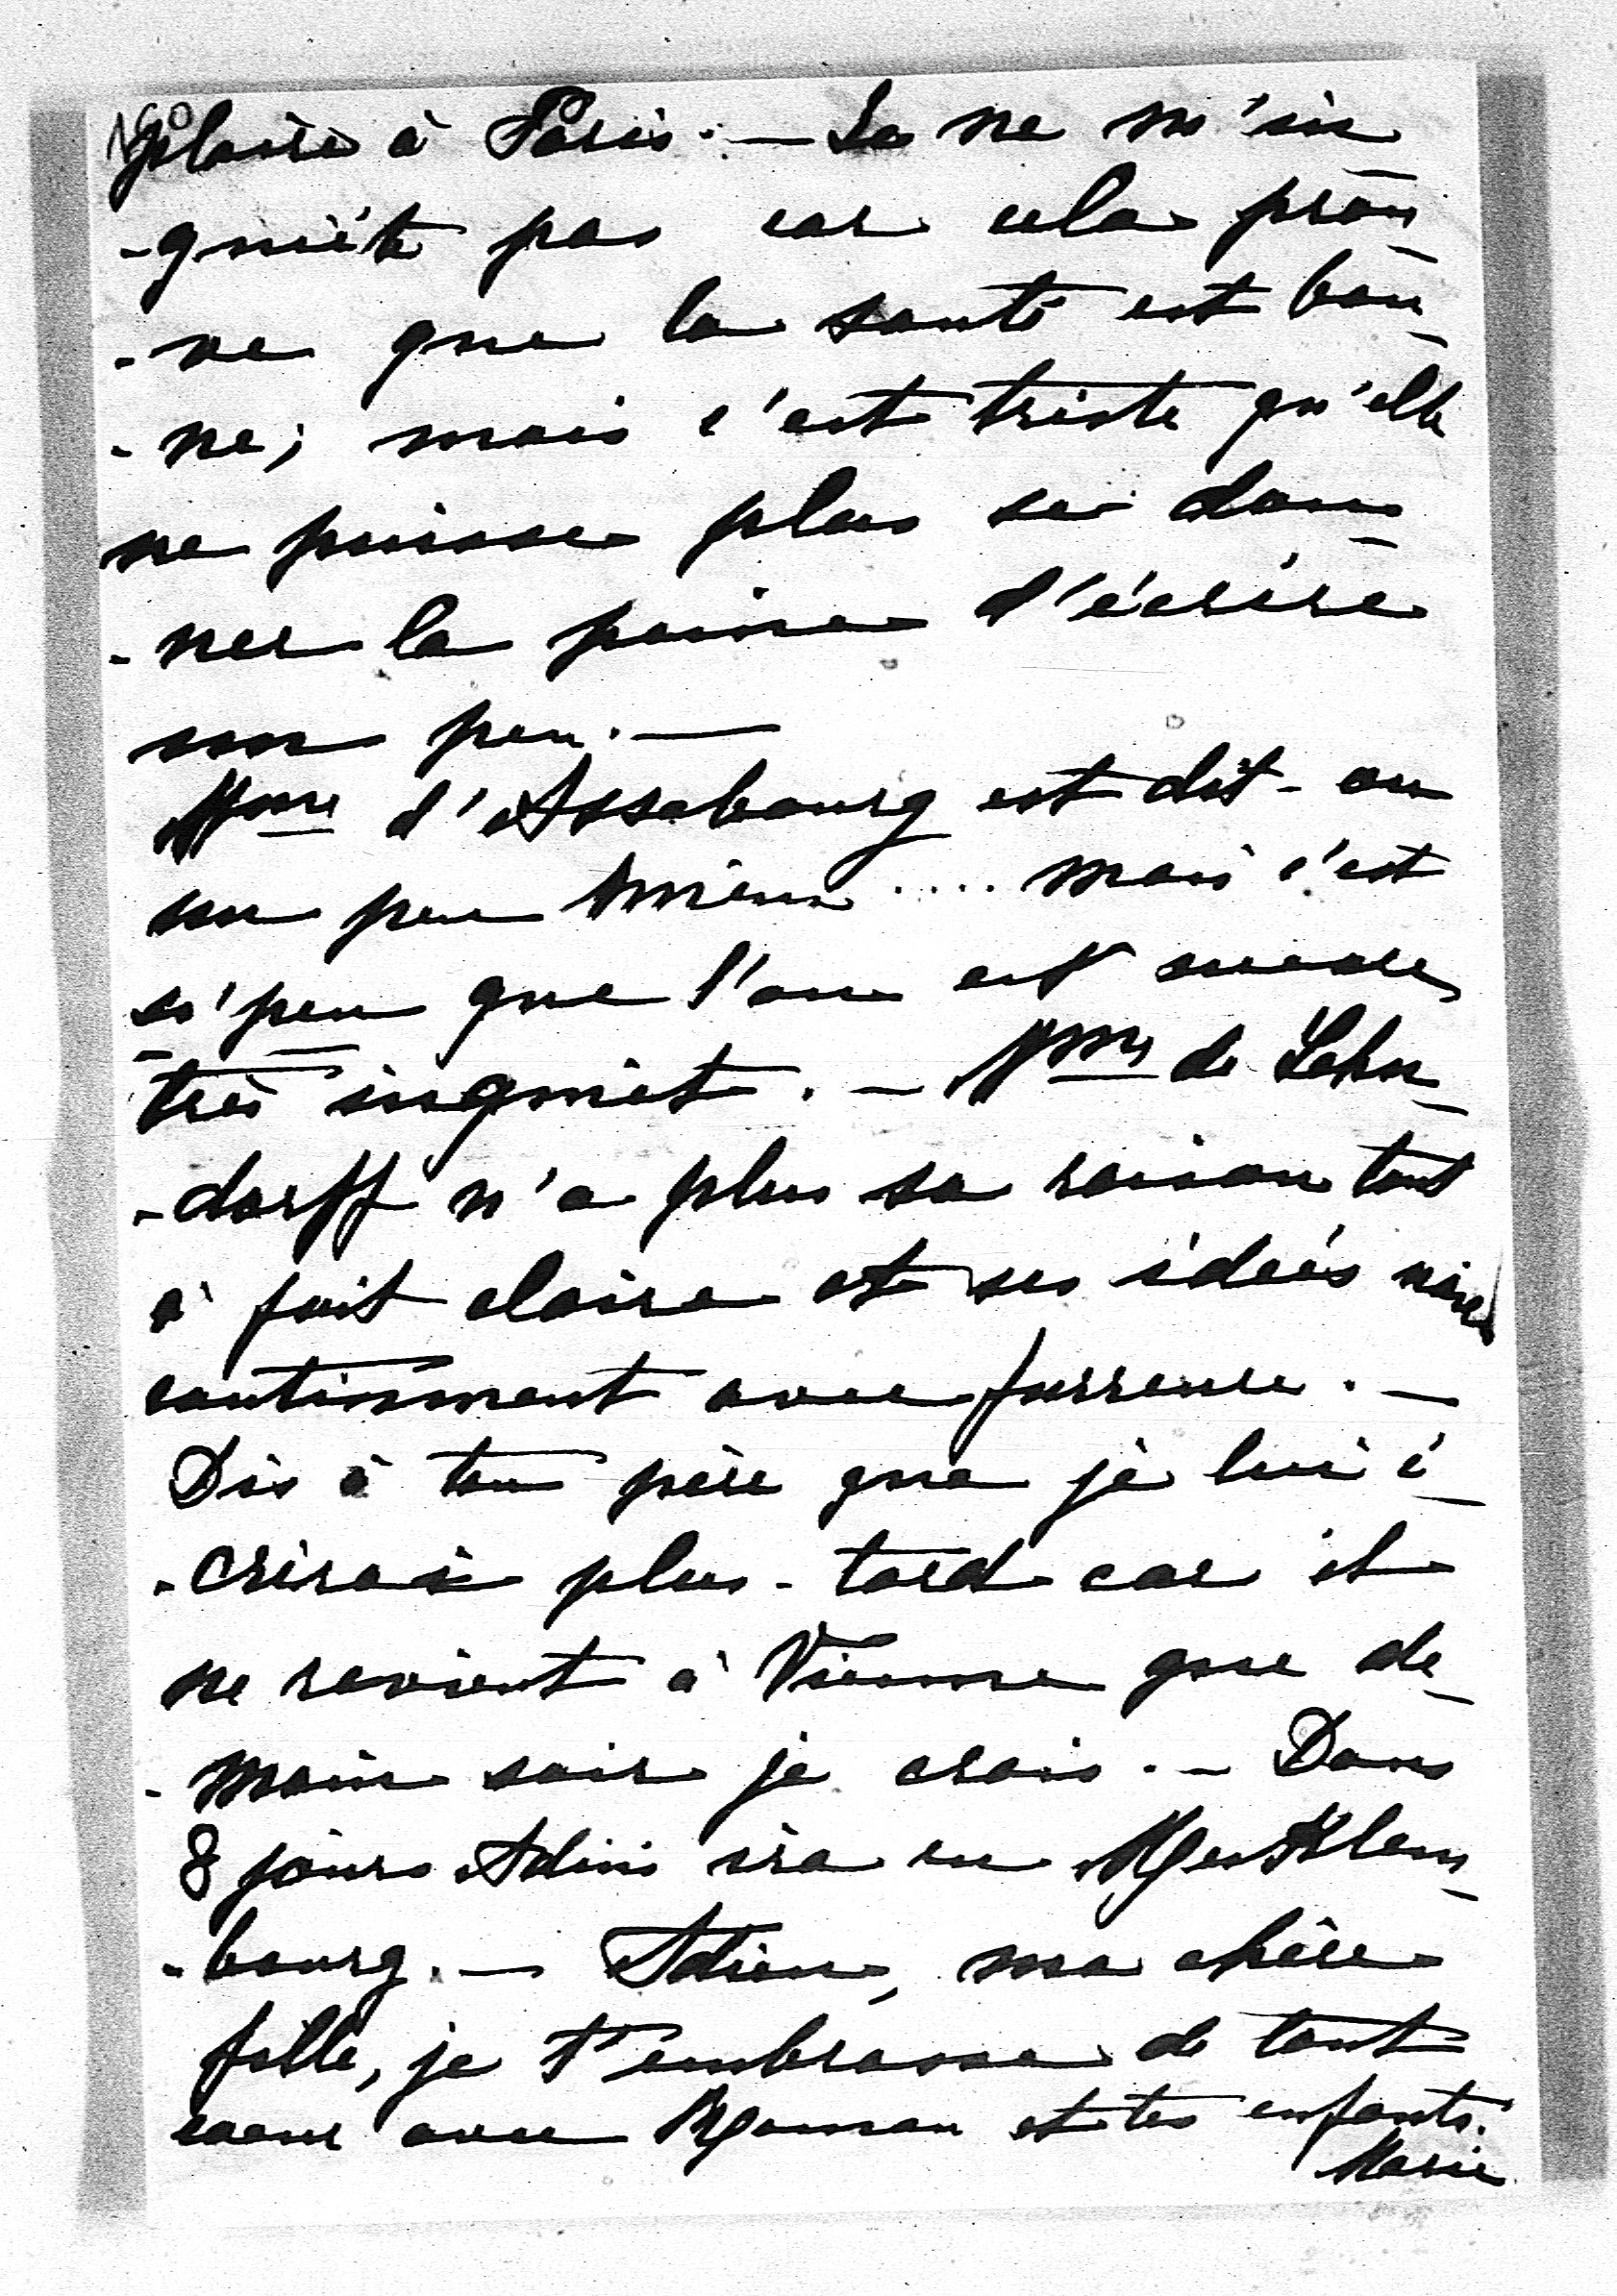 plaire à Paris. — Ça ne m'in
-quiète pas car cela prou-
-ve que la santé est bon-
-ne; mais c'est triste qu'elle
ne puisse plus se don-
-ner la peine d'écrire
un peu. —
Mme d'Assebourg est dit-on
un peu mieux .... mais c'est
si peu que l'on est encore
très inquiet. — Mme de Lehn-
-dorff n'a plus sa raison tout
à fait claire et ses idées
continuent avec
Dis à ton père que je lui é-
-crirai plus-tard car il
ne revient à Vienne que de-
-main soir je crois. — Dans
8 jours Adini ira en Mecklem-
-bourg. — Adieu, ma chère
fille, je t'embrasse de tout
coeur avec Roman et tes enfants.
Marie